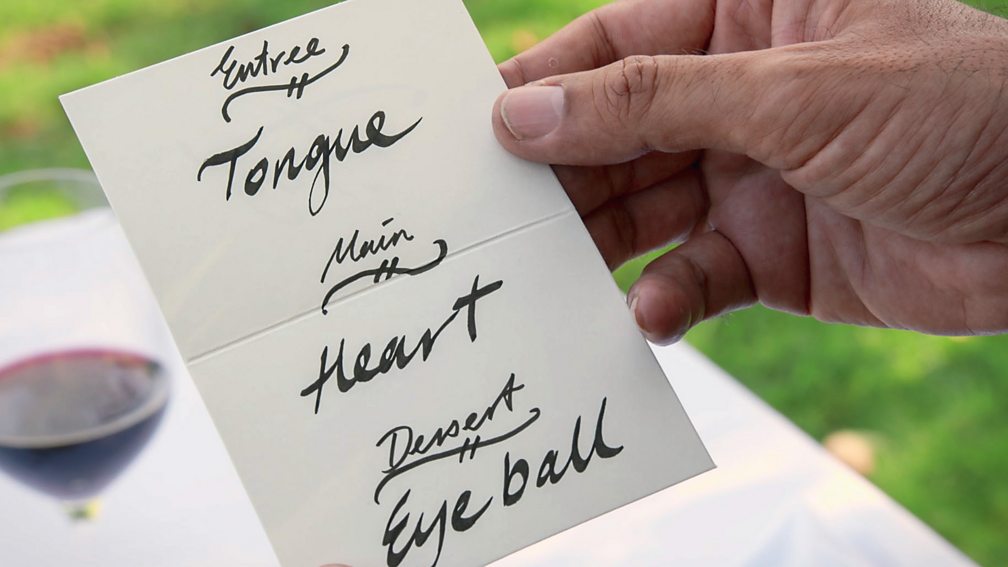 Entree
Tongue
Main
Heart
Dessert
Eyeball